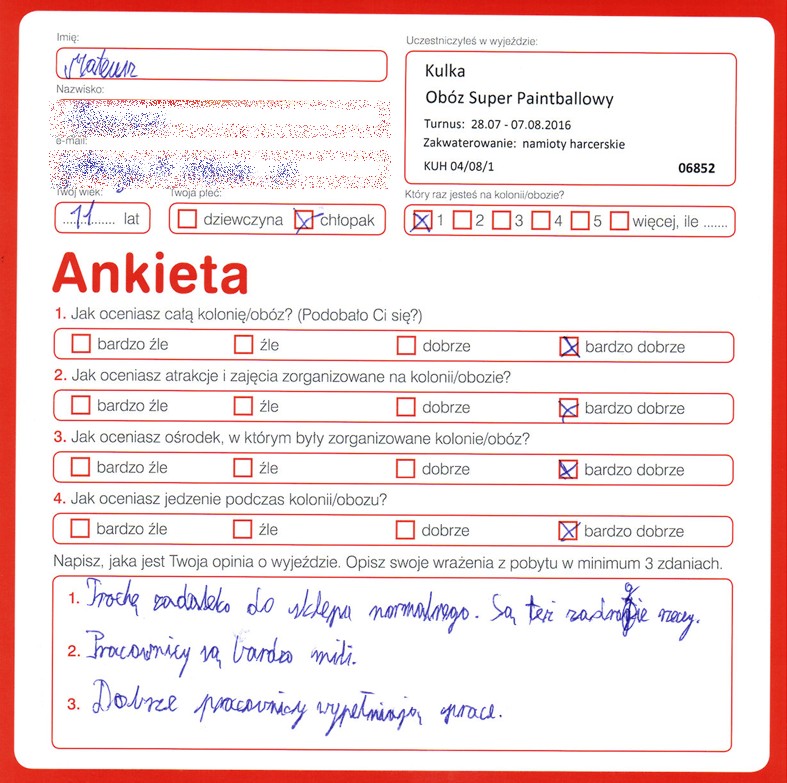 Imię:
Mateusz
Nazwisko:
e-mail:
Twój wiek:
11 lat
Twoja płeć:
dziewczyna chłopak
Uczestniczyłeś w wyjeździe:
Kulka
Obóz Super Paintballowy
Turnus: 28.07 - 07.08.2016
Zakwaterowanie: namioty harcerskie
KUH 04/08/1 06852
Który raz jesteś na kolonii/obozie?
1 2 3 4 5 więcej, ile .......
Ankieta
1. Jak oceniasz całą kolonię/obóz? (Podobało Ci się?)
bardzo źle źle dobrze bardzo dobrze
2. Jak oceniasz atrakcje i zajęcia zorganizowane na kolonii/obozie?
bardzo źle źle dobrze bardzo dobrze
3. Jak oceniasz ośrodek, w którym były zorganizowane kolonie/obóz?
bardzo źle źle dobrze bardzo dobrze
4. Jak oceniasz jedzenie podczas kolonii/obozu?
bardzo źle źle dobrze bardzo dobrze
Napisz, jaka jest Twoja opinia o wyjeździe. Opisz swoje wrażenia z pobytu w minimum 3 zdaniach.
1. Trochę zadaleko do sklepu normalnego. Są też rzeczy.
2. Pracownicy są bardzo mili.
3. Dobrze pracownicy wypełniają prace.